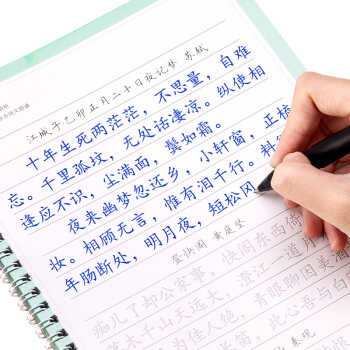 江城子乙卯正月二十日夜记梦 苏轼
十年生死两茫茫，不思量，自难
忘。千里孤坟，无处话凄凉。纵使相
逢应不识，尘满面，鬓如霜。
夜来幽梦忽还乡，小轩窗，正梳
妆。相顾无言，惟有泪千行。料
年肠断处，明月夜，短松冈
登快阁 黄庭坚
痴儿了却公家事，快阁东西倚
落木千山天远大，澄江一道月
为佳人绝，青眼聊因美
此心吾与白
秦观